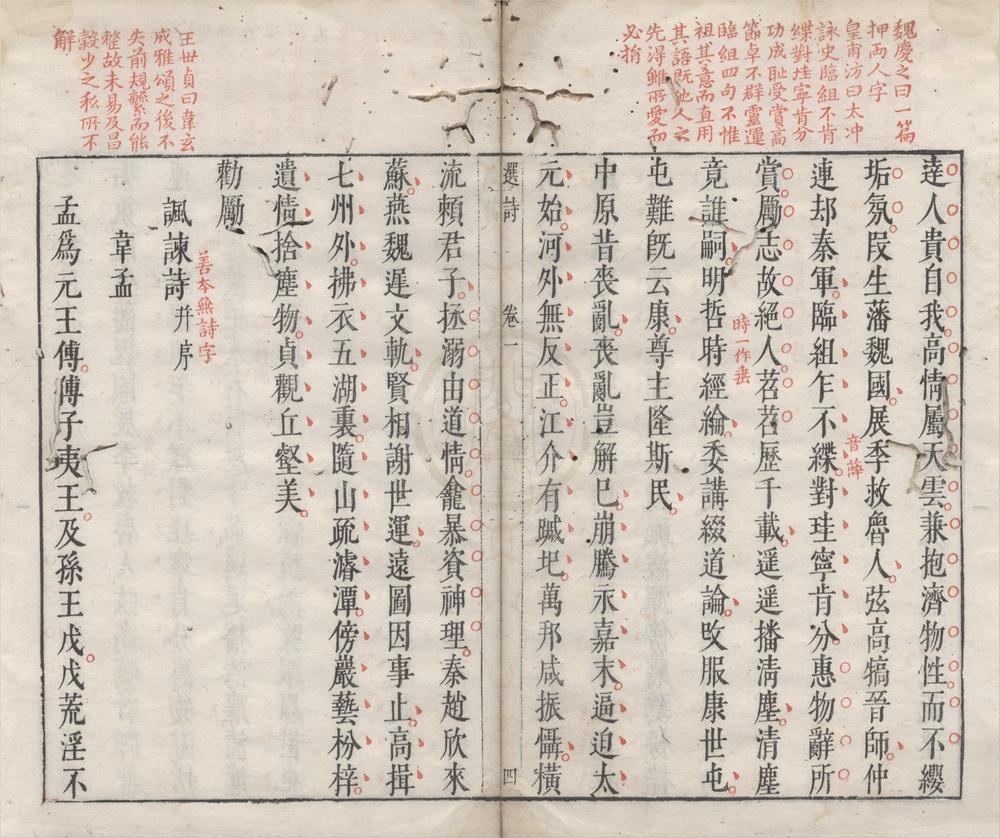 魏慶之曰一篇
押兩人字
皇甫汸曰太冲
詠史臨組不肯
緤對珪寧肯分
功成耻受賞高
節卓不群靈運
臨組四句不惟
祖其意而直用
其語既他人之
先得雖所愛而
必捐
王世貞曰韋玄
成雅頌之後不
失前規繁而能
整故未易及昌
穀少之私所不
解
逹人貴自我高情屬天雲兼抱濟物性而不纓
垢氛叚生藩魏國展季救魯人弦高犒晉師仲
連却秦軍臨組乍不緤對珪寧肯分惠物辭所
音薛
賞勵志故絕人苕苕歷千載遥遥播清塵清塵
竟誰嗣明哲時經綸委講綴道論攺服康世屯
時一作垂
屯難旣云康尊主隆斯民
中原昔喪亂喪亂豈解已崩騰永嘉末逼迫太
元始河外無反正江介有䠞圯萬邦咸振懾橫
選詩
卷一
四
流賴君子拯溺由道情龕暴資神理秦趙欣來
蘇燕魏遲文軌賢相謝世運遠圖因事止高揖
七州外拂衣五湖裏隨山疏濬潭傍巖藝枌梓
遺情捨塵物貞觀丘壑美
勸勵
諷諫詩并序
善本無詩字
韋孟
孟爲元王傅傅子夷王及孫王戊戊荒淫不